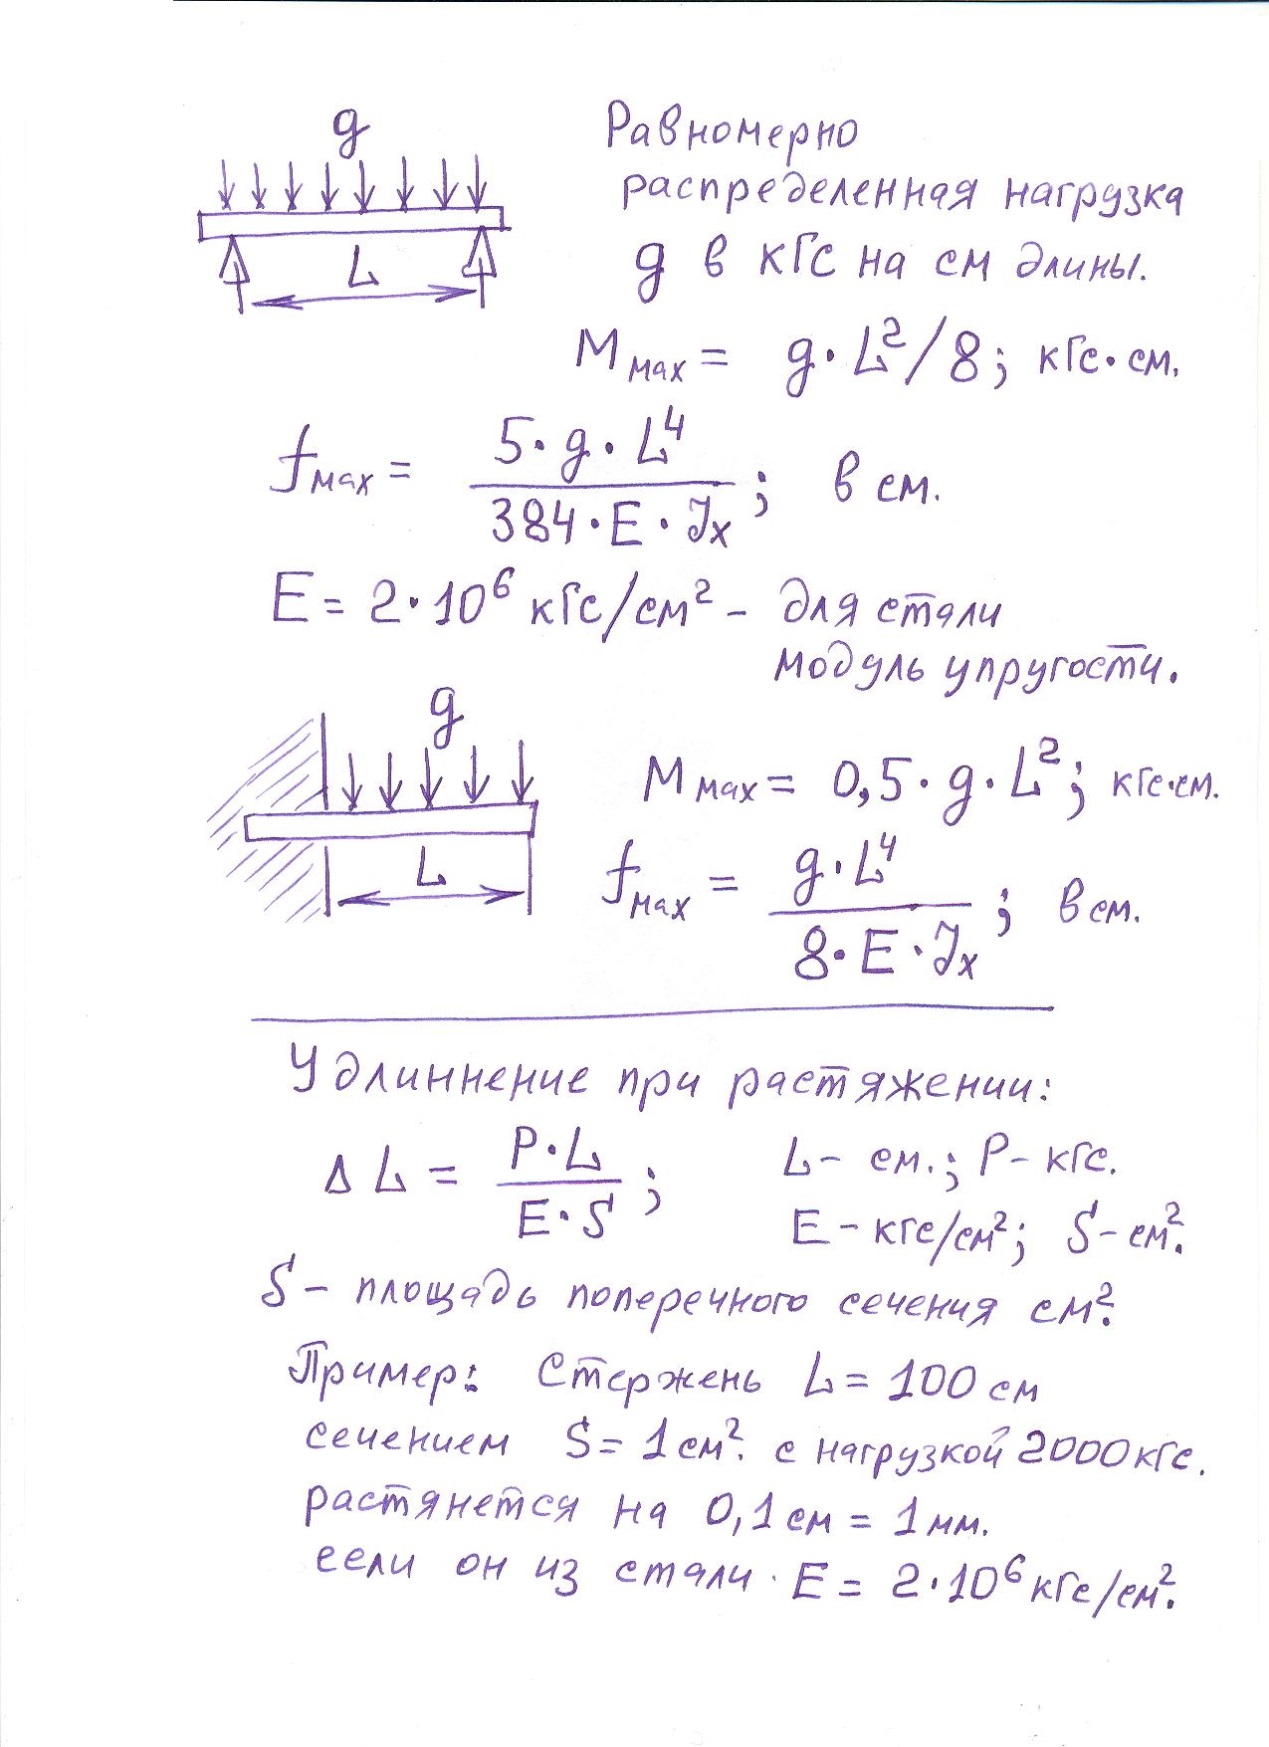 g
L
Равномерно
распределенная нагрузка
g в кгс на см длины.
M мах = g·L²/8; кгс·см.
f мах = 5·g·L⁴ / 384·E·Jx; в см.
E = 2·10⁶ кгс/см² – для стали
модуль упругости.
g
L
M мах = 0,5·g·L²; кгс·см.
f мах = g·L⁴ / 8·E·Jx; в см.
Удлиннение при растяжении:
Δ L = P·L / E·S; L – см.; P – кгс.
E – кгс/см²; S – см².
S – площадь поперечного сечения см².
Пример: Стержень L = 100 см
сечением S = 1 см². с нагрузкой 2000 кгс.
растянется на 0,1 см = 1 мм.
если он из стали. E = 2·10⁶ кгс/см².